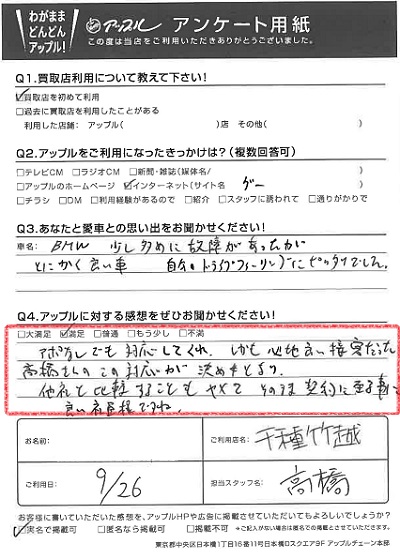 わがまま
どんどん
アップル!
アップル アンケート用紙
この度は当店をご利用いただきありがとうございました。
Q1.買取店利用について教えて下さい!
☑買取店を初めて利用
□過去に買取店を利用したことがある
利用した店舗： アップル( )店 その他( )
Q2.アップルをご利用になったきっかけは?(複数回答可)
□テレビCM □ラジオCM □新聞・雑誌(媒体名/ )
□アップルのホームページ ☑インターネット(サイト名 グー )
□チラシ □DM □利用経験があるので □紹介 □スタッフに誘われて □通りがかりで
Q3.あなたと愛車との思い出をお聞かせください!
車名: BMW 少し多めに故障があったが
とにかく良い車 自分のドライブフィーリングにピッタリでした。
Q4.アップルに対する感想をぜひお聞かせください!
□大満足 ☑満足 □普通 □もう少し □不満
アポなしでも対応してくれ、しかも心地良い接客だった
高橋さんのこの対応が決め手となり、
他社と比較することもやめてそのまま契約に至る
良い社員様ですね。
お名前:
ご利用店名: 千種竹越
ご利用日: 9/26
担当スタッフ名: 高橋
お客様に書いていただいた感想を、アップルHPや広告に掲載させていただいてもよろしいでしょうか?
☑実名で掲載可 □匿名なら掲載可 □掲載不可 →ご記入がない場合は匿名での掲載とさせていただきます。
東京都中央区日本橋1丁目16番11号日本橋Oスクエア9F アップルチェーン本部